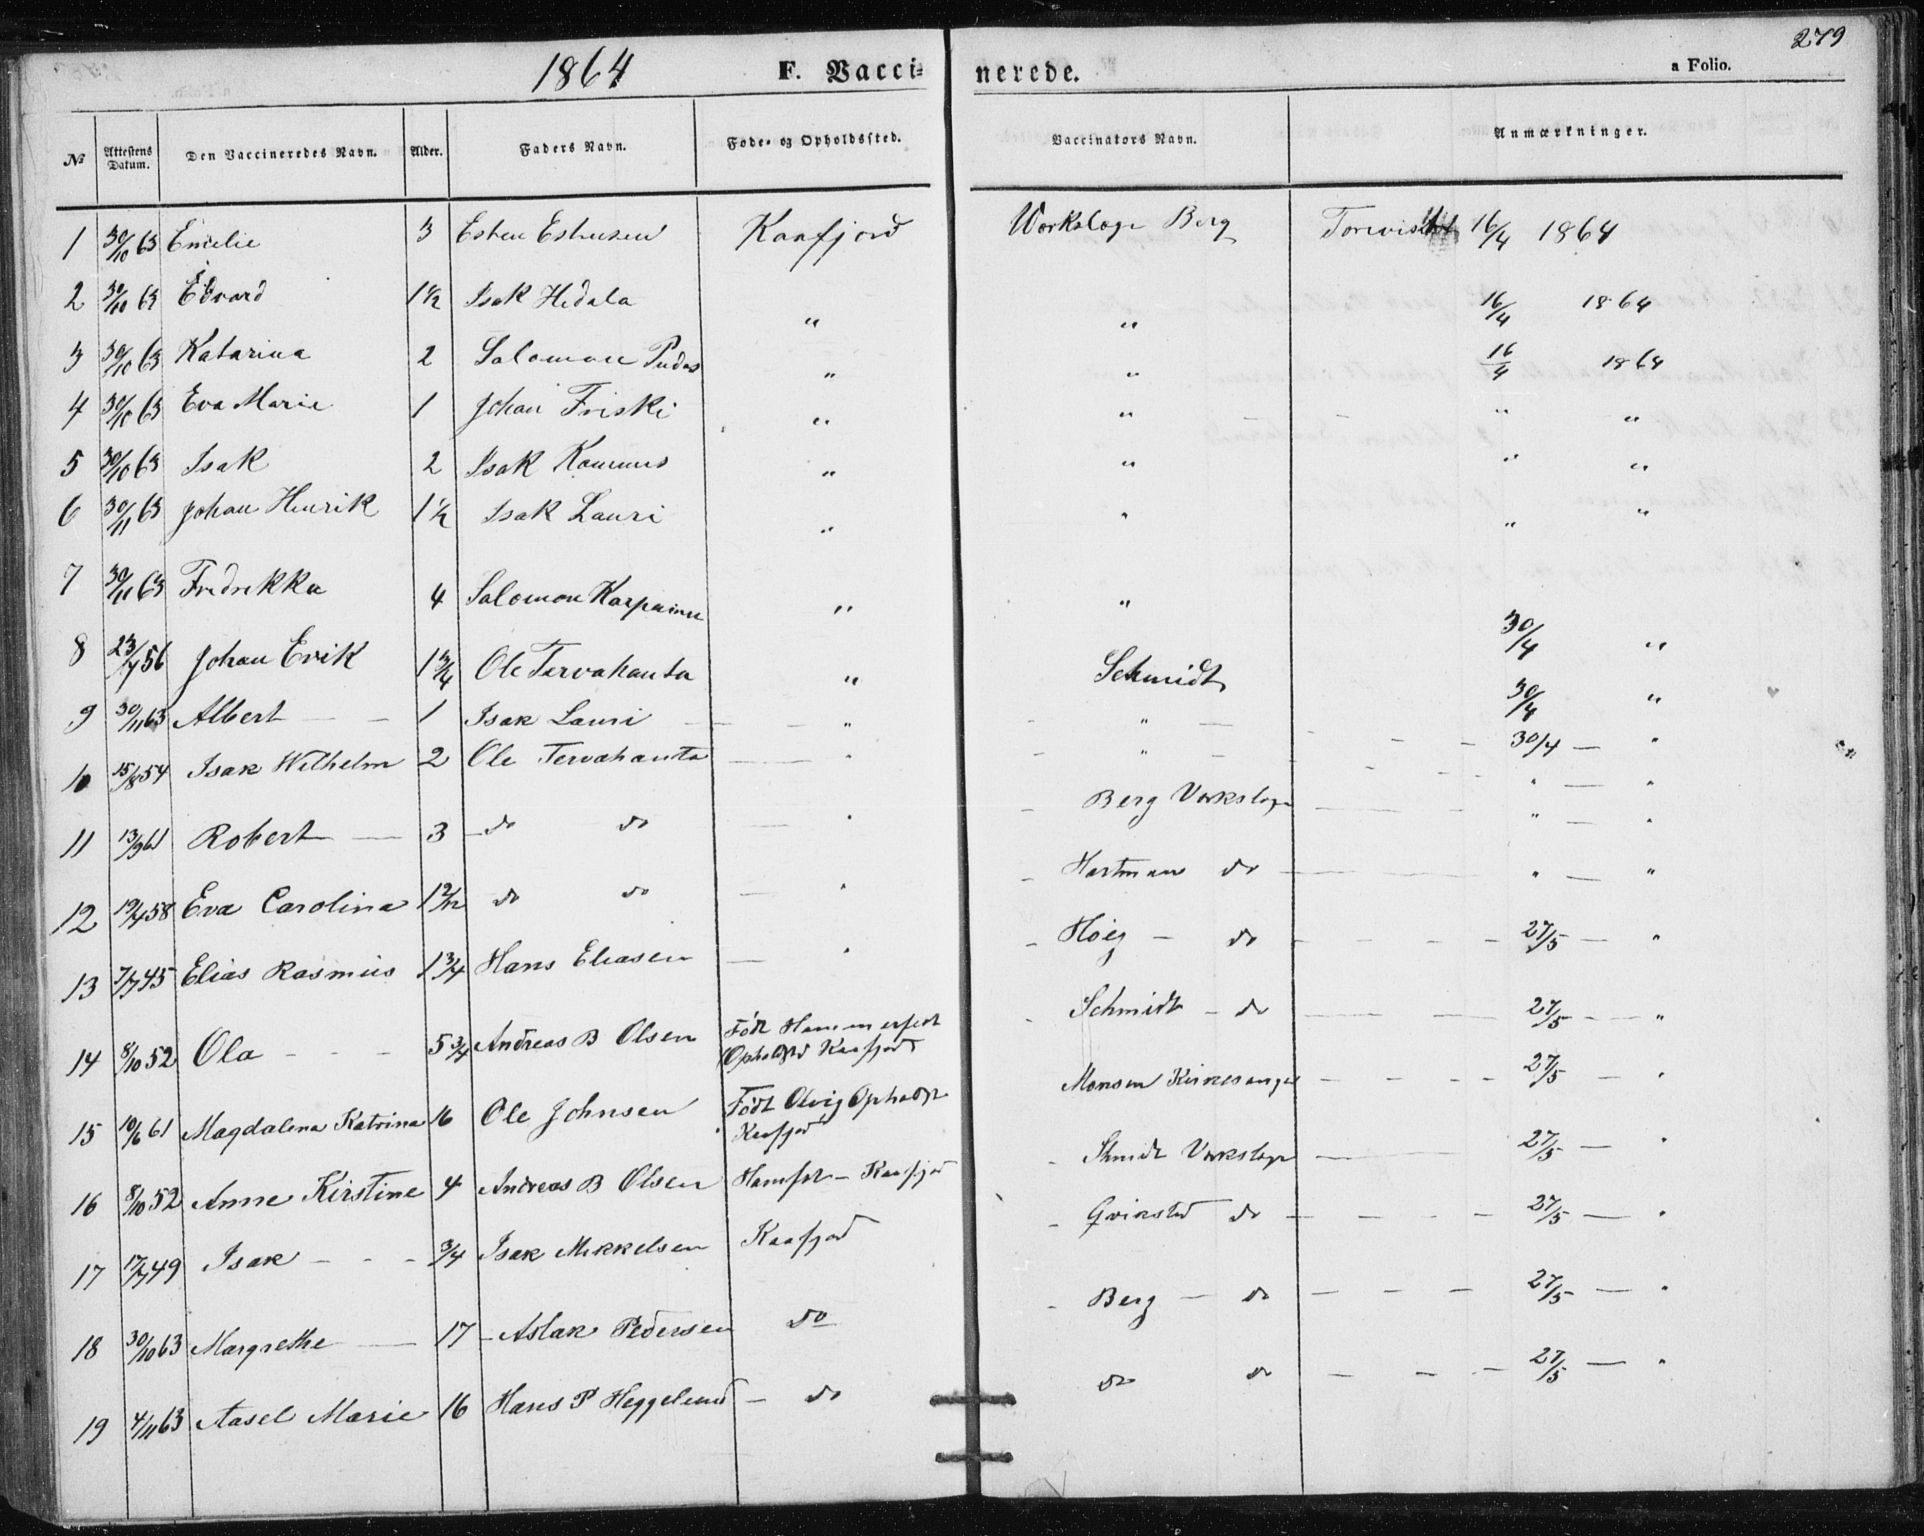 1864 F. Vacci- nerede. a Folio. 279
No Attestens Datum. Den Vaccineredes Navn. Alder. Faders Navn. Føde- og Opholdssted. Vaccinators Navn. Anmærkninger.
1 30/10 63 Emilie 3 Esten Estensen Kaafjord Værkslæge Berg Foreviist 16/4 1864
2 30/10 63 Edvard 1 1/2 Isak Hedala " " 16/4 1864
3 30/10 63 Katarina 2 Salomon Pudas " " 16/4 1864
4 30/10 63 Eva Marie 1 Johan Friski " " " "
5 30/10 63 Isak 2 Isak " " " "
6 30/11 63 Johan Henrik 1 1/2 Isak Lauri " " " "
7 30/11 63 Fredrikka 4 Salomon " "
8 23/7 56 Johan Erik 1 3/4 Ole Tervahauta " Schmidt 30/4 "
9 30/11 63 Albert — — 1 Isak Lauri — — " — " — 30/4 "
10 15/8 54 Isak Wilhelm 2 Ole Tervahauta — — " — " — 30/4 — "
11 13/9 61 Robert — 3 do do — " — Berg Værkslæge — " — "
12 19/4 58 Eva Carolina 1 2/12 do do — " — Hartman do — " — "
13 7/7 45 Elias Rasmus 1 3/4 Hans Eliasen — " — Høeg — do — 27/5 — "
14 8/10 52 Ola - - - 5 3/4 Andreas B Olsen Født Hammerfest Opholdsst Kaafjord Schmidt — do — 27/5 — "
15 10/6 61 Magdalena Katrina 16 Ole Johnsen Født Olvig Opholdst Kaafjord Monsen Kirkesanger — 27/5 — "
16 8/10 52 Anne Kirstine 4 Andreas B Olsen Hamfst — Kaafjord — Schmidt Værkslæge — 27/5 — "
17 17/7 49 Isak - - - 3/4 Isak Mikkelsen Kaafjord — Qviksted do — 27/5 — "
18 30/10 63 Margrethe — 17 — Aslak Pedersen do — Berg — do — 27/5 — "
19 4/11 63 Aasel Marie 16 Hans P Heggelund — do do do — 27/5 — "